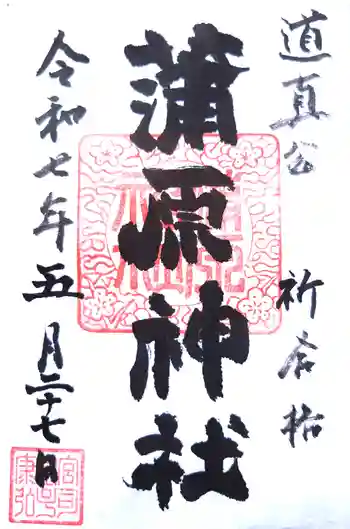 道真公 祈念拾
蒲原神社
令和七年五月二十七日
宮司
康弘